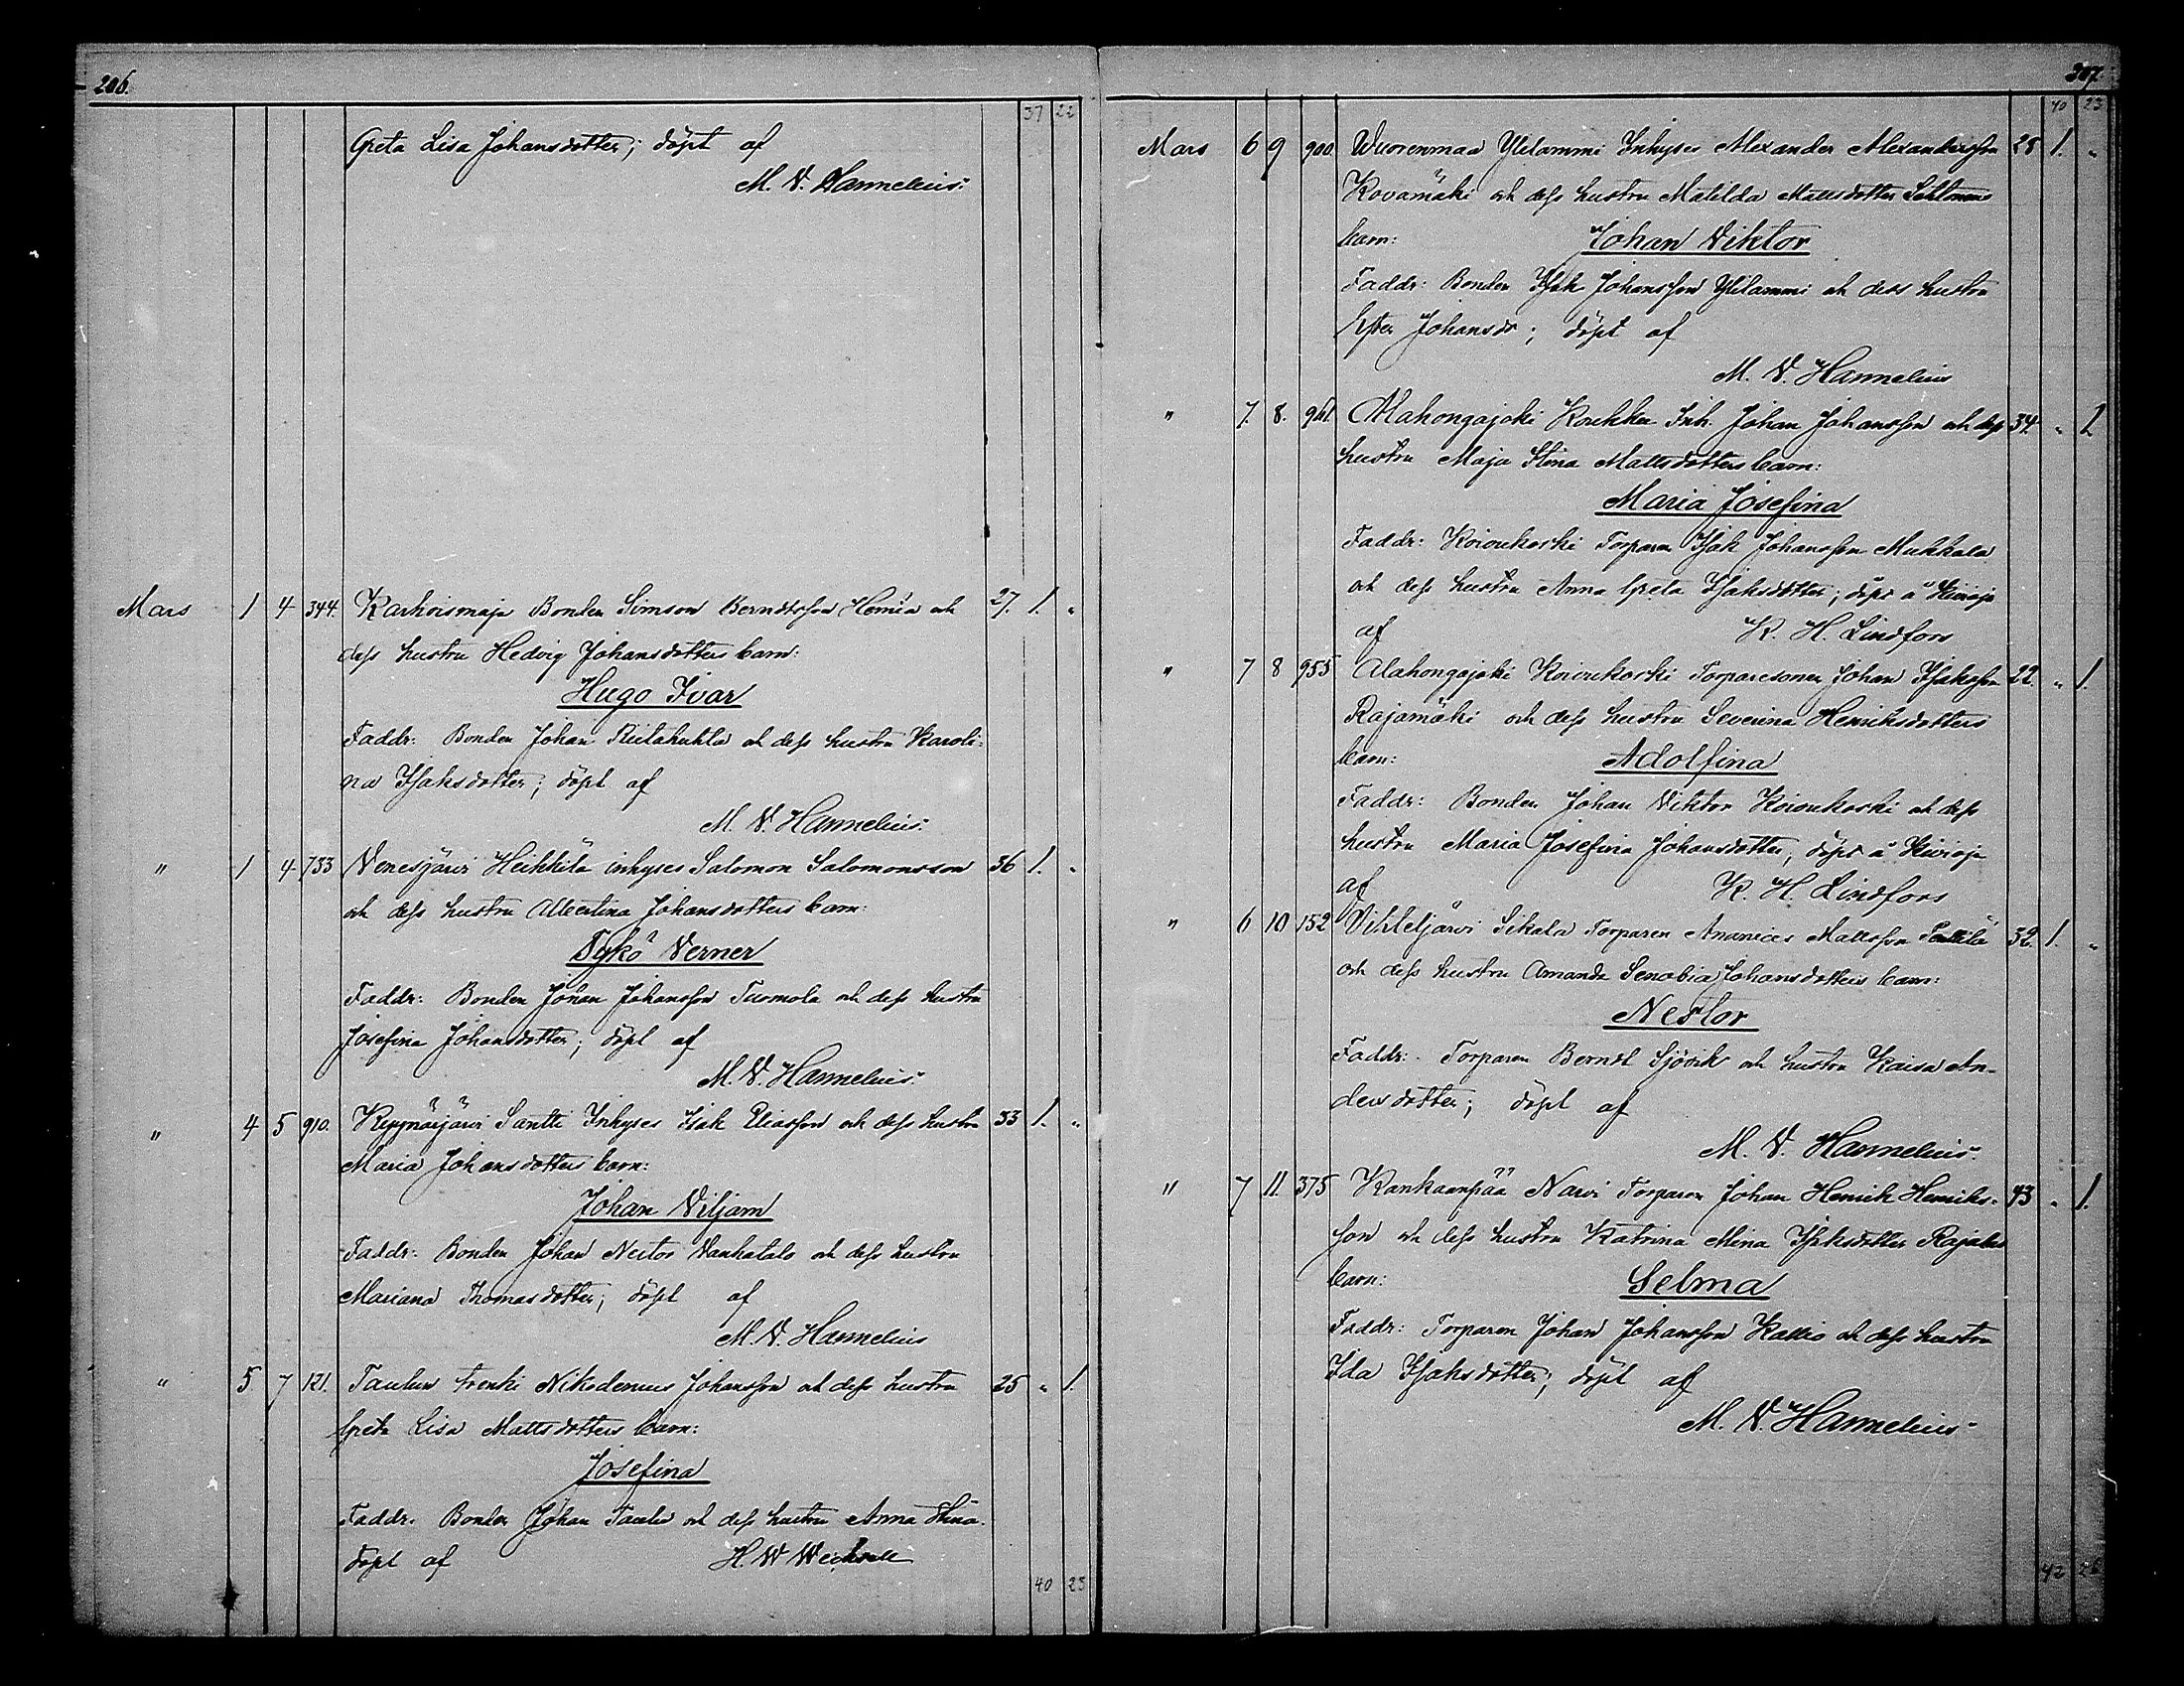 206.
37 22
Greta Lisa Johansdotter; döpt af
M. V. Hannelius.
Mars 1 4 344. Karhoismaja Bonden Simson Berndtsson Homia och 27. 1. "
dess hustru Hedvig Johansdotters barn:
Hugo Ivar
Faddr: Bonden Johan och dess hustru Karoli-
na Isaksdotter; döpt af
M. V. Hannelius.
" 1 4 733 Venesjärvi Heikkilä inhyses Salomon Salomonsson 36 1. "
och dess hustru Albertina Johansdotters barn:
Tykö Verner
Faddr: Bonden Johan Johansson Tuomola och dess hustru
Josefina Johansdotter; döpt af
M. V. Hannelius.
" 4 5 910. Santti Inhyses Isak Eliasson och dess hustru 33 1. "
Maria Johansdotters barn:
Johan Viljam
Faddr: Bonden Johan Nestor Vanhatalo och dess hustru
Mariana Thomasdotter; döpt af
M. V. Hannelius
" 5 7 121. Taulun Nikodemus Johansson och dess hustru 25 " 1.
Greta Lisa Mattsdotters barn:
Josefina
Faddr. Bonden Johan Taulu och dess hustru Anna Stina.
döpt af H. W
40 23
307.
40 23
Mars 6 9 900. Wuorenmaa Ylilammi Inhyses Alexander Alexandersson 28 1. "
Kovamäki och dess hustru Matilda Mattsdotter
barn: Johan Viktor
Faddr: Bonden Isak Johansson Ylilammi och dess hustru
Ester Johansdr; döpt af
M. V. Hannelius
" 7. 8. 961. Alahongajoki Koukku Inh. Johan Johansson och dess 34. " 1.
hustru Maja Stina Mattsdotters barn:
Maria Josefina
Faddr: Koivukoski Torparen Isak Johansson Mukkala
och dess hustru Anna Greta Isaksdotter; döpt å Kivioja
af K. H. Lindfors
" 7 8 955 Alahongajoki Koivukoski Torparesonen Johan Isaksson 22. " 1.
Rajamäki och dess hustru Severina Henriksdotters
barn: Adolfina
Faddr: Bonden Johan Viktor Koivukoski och dess
hustru Maria Josefina Johansdotter; döpt å Kivioja
af K. H. Lindfors
" 6 10 152 Vihteljärvi Sikala Torparen Ananias Mattsson 32. 1. "
och dess hustru Amanda Senobia Johansdotters barn:
Nestor
Faddr: Torparen Berndt Sjövik och hustru Kaisa An-
dersdotter; döpt af
M. V. Hannelius.
" 7 11. 375 Kankaanpää Narvi Torparen Johan Henrik Henriks- 43 " 1.
son och dess hustru Katrina Mina Isaksdotter Rajalas
barn: Selma
Faddr: Torparen Johan Johansson Kallio och dess hustru
Ida Isaksdotter; döpt af
M. V. Hannelius
42 26